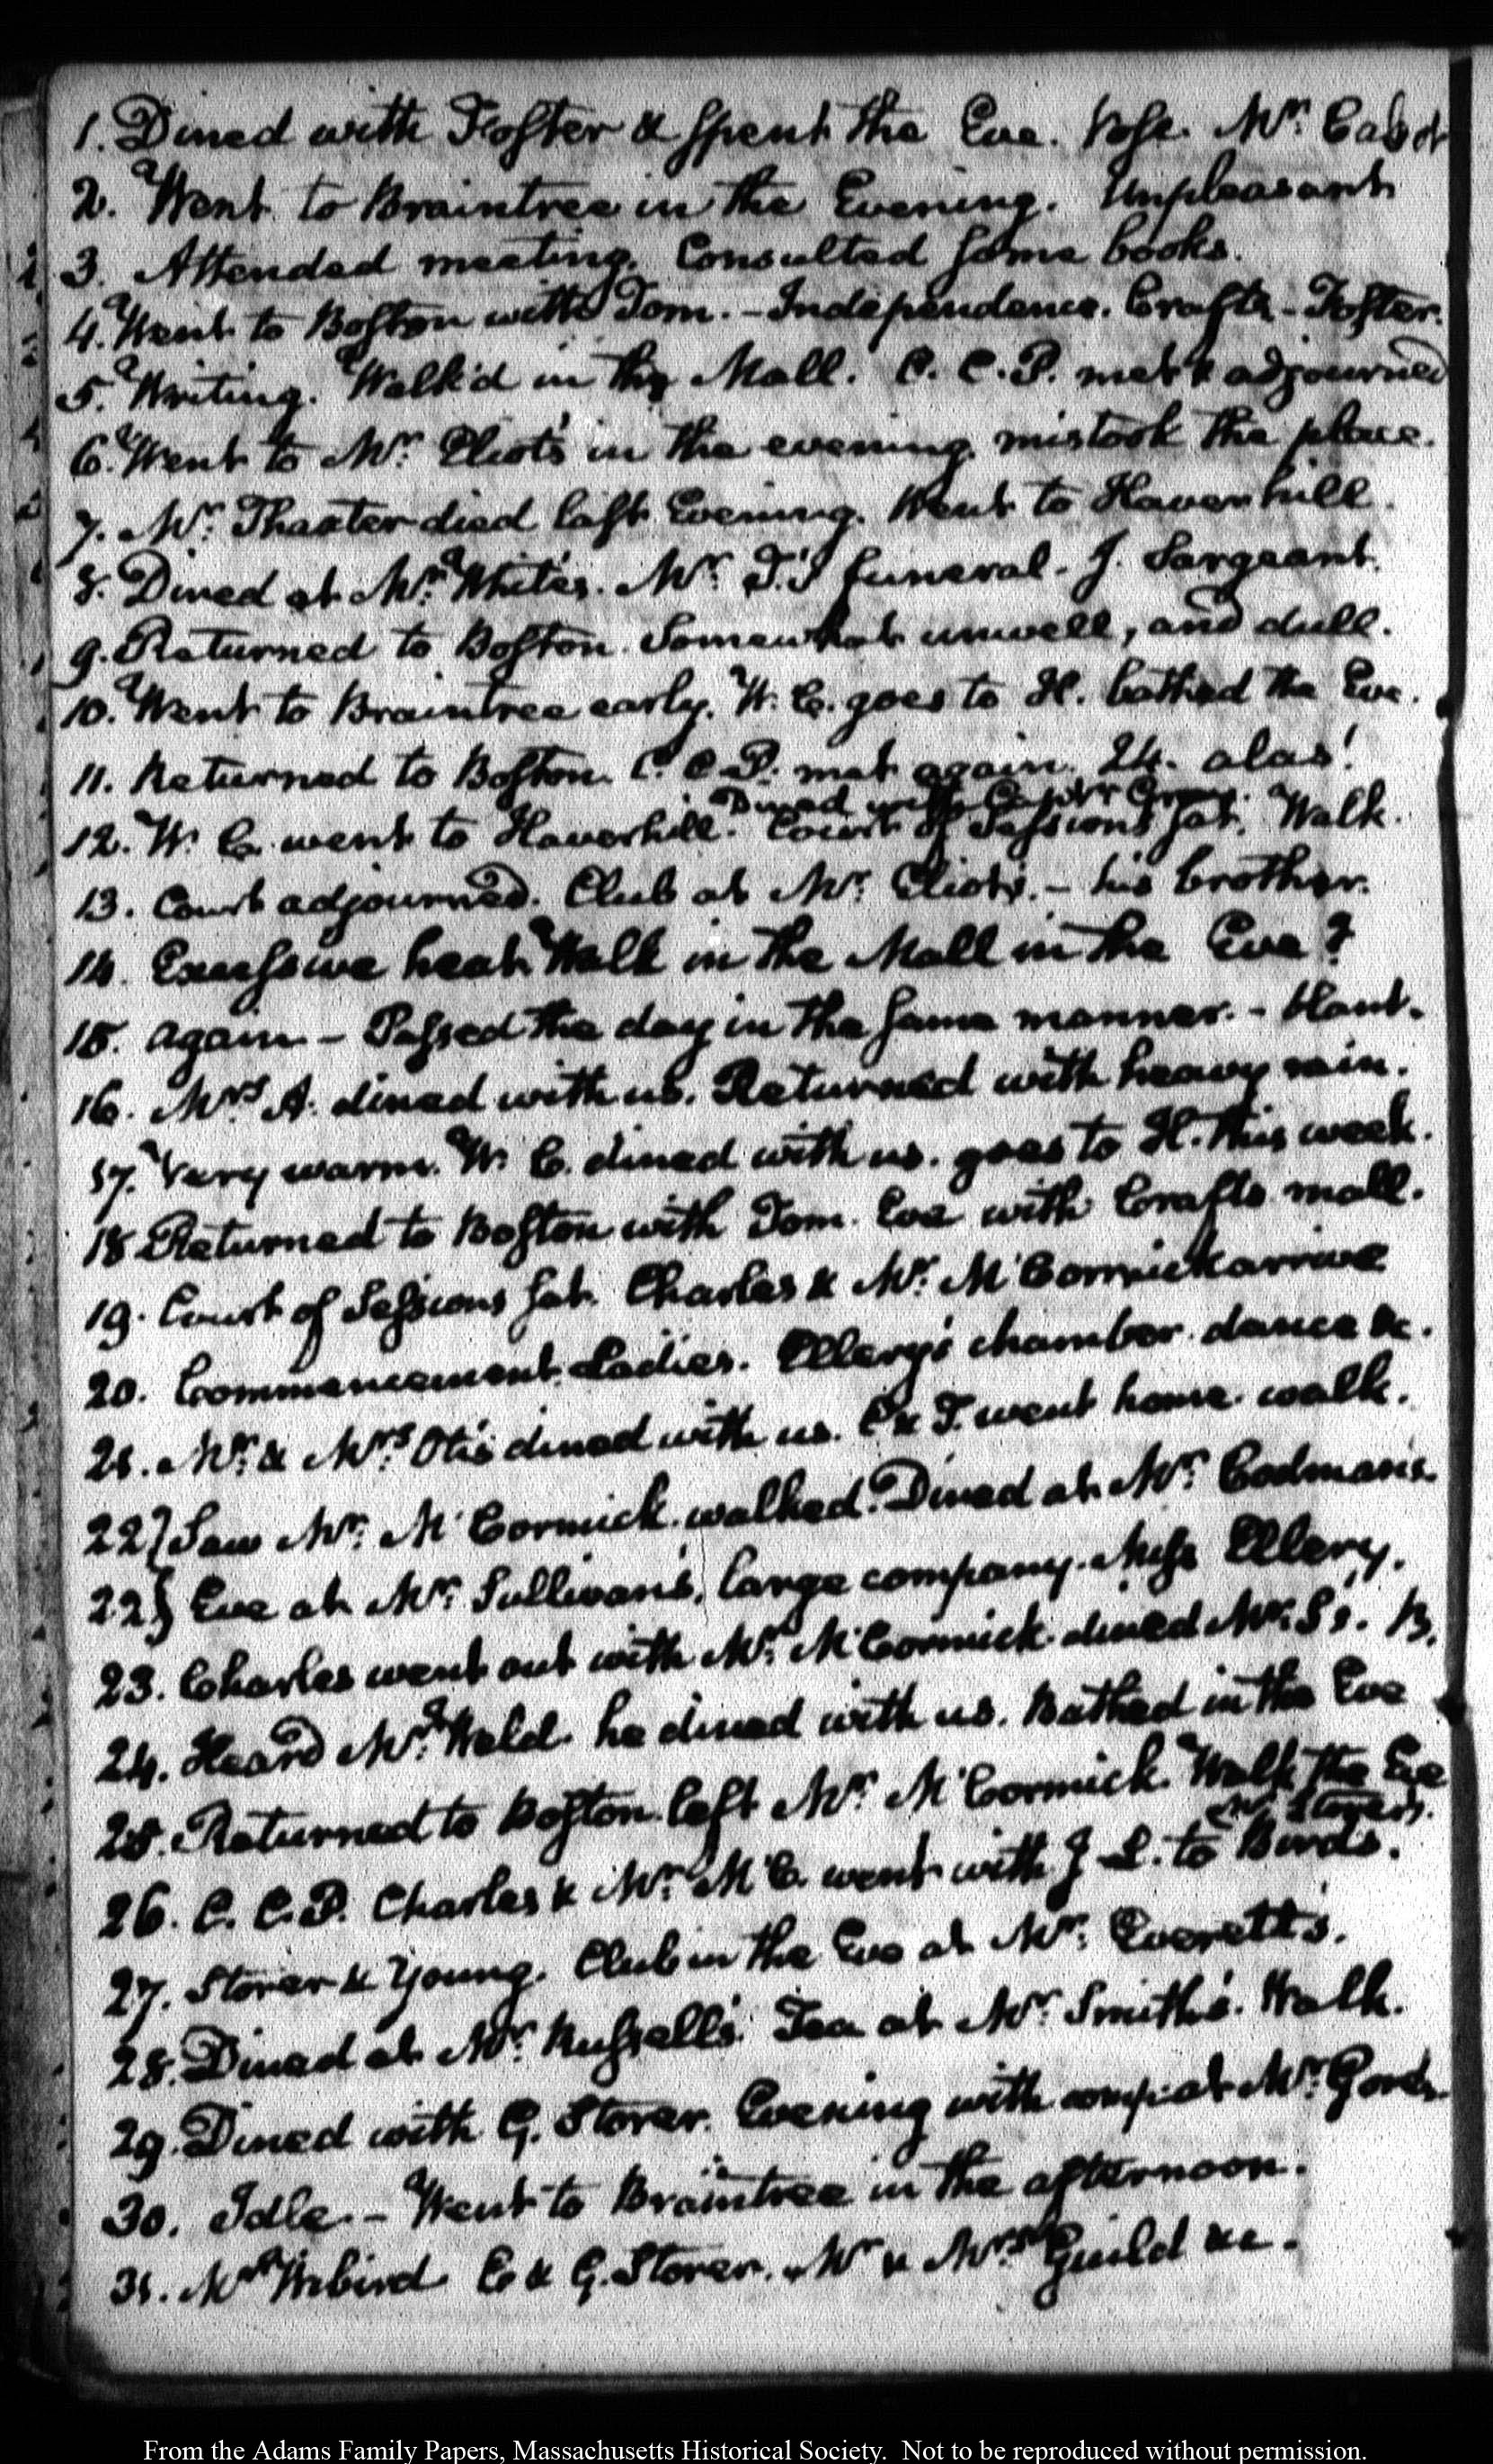 1. Dined with Foster & spent the Eve. Vose. Mr. Cabot
2. Went to Braintree in the Evening. Unpleasant
3. Attended meeting. Consulted some books.
4. Went to Boston with Tom. - Independence. Crafts - Foster.
5. Writing. Walk'd in the Mall. C. C. P. met & adjourned
6. Went to Mr. Eliot's in the evening. mistook the place.
7. Mr. Thaxter died last Evening. Went to Haverhill.
8. Dined at Mr. White's. Mr. T.'s funeral. J. Sargeant.
9. Returned to Boston. Somewhat unwell, and dull.
10. Went to Braintree early. W. C. goes to H. bathed the Eve.
11. Returned to Boston. C. C. P. met again. 24. alas!
Dined with
12. W. C. went to Haverhill. Court of Sessions sat. Walk.
13. Court adjourned. Club at Mr. Eliot's. - his brother.
14. Excessive heat. Walk in the Mall in the Eve?
15. Again - Passed the day in the same manner. - Hunt.
16. Mrs A. dined with us. Returned with heavy rain.
17. Very warm. W. C. dined with us. goes to H. this week.
18 Returned to Boston with Tom. Eve with Crafts. mall.
19. Court of Sessions sat. Charles & Mr. McCormick arrive
20. Commencement. Ladies. Ellery's chamber. dance &c.
21. Mr. & Mrs Otis dined with us. C & T. went home. walk.
22} Saw Mr. McCormick. walked. Dined at Mr. Codman's.
22} Eve at Mr. Sullivan's, large company. Miss Ellery.
23. Charles went out with Mr. McCormick. dined Mr. S's. B.
24. Heard Mr. Weld. he dined with us. Bathed in the Eve
25. Returned to Boston. left Mr. McCormick. Walk the Eve
Storer's.
26. C. C. P. Charles & Mr. McC. went with J L. to Birds.
27. Storer & Young. Club in the Eve at Mr. Everett's.
28. Dined at Mr. Russell's. Tea at Mr. Smith's. Walk.
29. Dined with G. Storer. Evening with comp: at Mr.
30. Idle. - Went to Braintree in the afternoon.
31. Mr Wibird. E & G. Storer. Mr & Mrs Guild &c.
From the Adams Family Papers, Massachusetts Historical Society.  Not to be reproduced without permission.